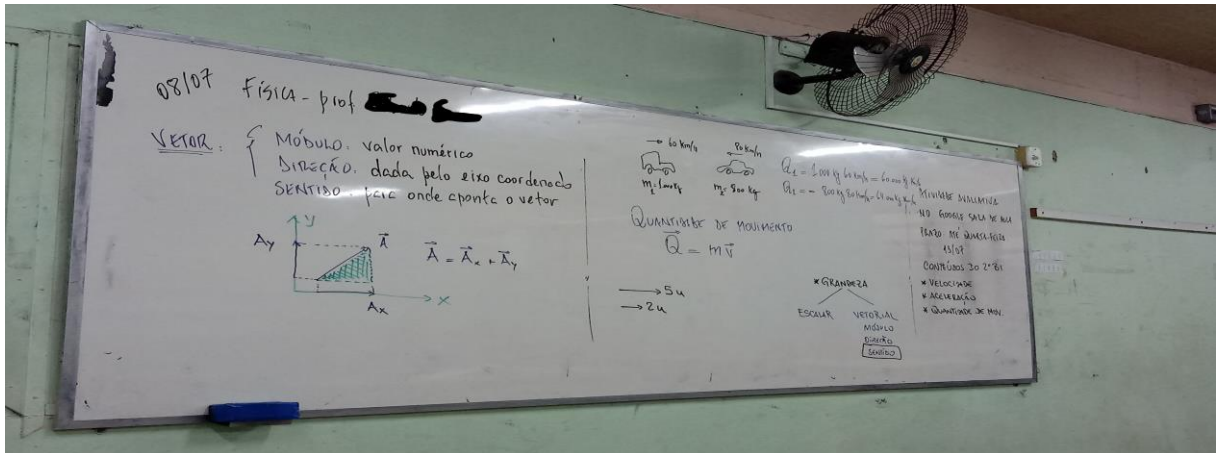 08/07 FÍSICA - prof
VETOR: { MÓDULO. valor numérico
DIREÇÃO. dada pelo eixo coordenado
SENTIDO. para onde aponta o vetor
y
Ay
A⃗
A⃗ = A⃗x + A⃗y
x
Ax
→ 60 km/h
80 km/h
m₁=1000kg
m₂=800 kg
Q₁ = 1000 kg 60 km/h = 60.000 kg km/h
Q₂ = - 800 kg 80 km/h =
QUANTIDADE DE MOVIMENTO
Q⃗ = m v⃗
→ 5u
→ 2u
* GRANDEZA
ESCALAR VETORIAL
MÓDULO
DIREÇÃO
SENTIDO
ATIVIDADE AVALIATIVA
NO GOOGLE SALA DE AULA
PRAZO ATÉ QUARTA-FEIRA
13/07
CONTEÚDOS DO 2º BI
* VELOCIDADE
* ACELERAÇÃO
* QUANTIDADE DE MOV.